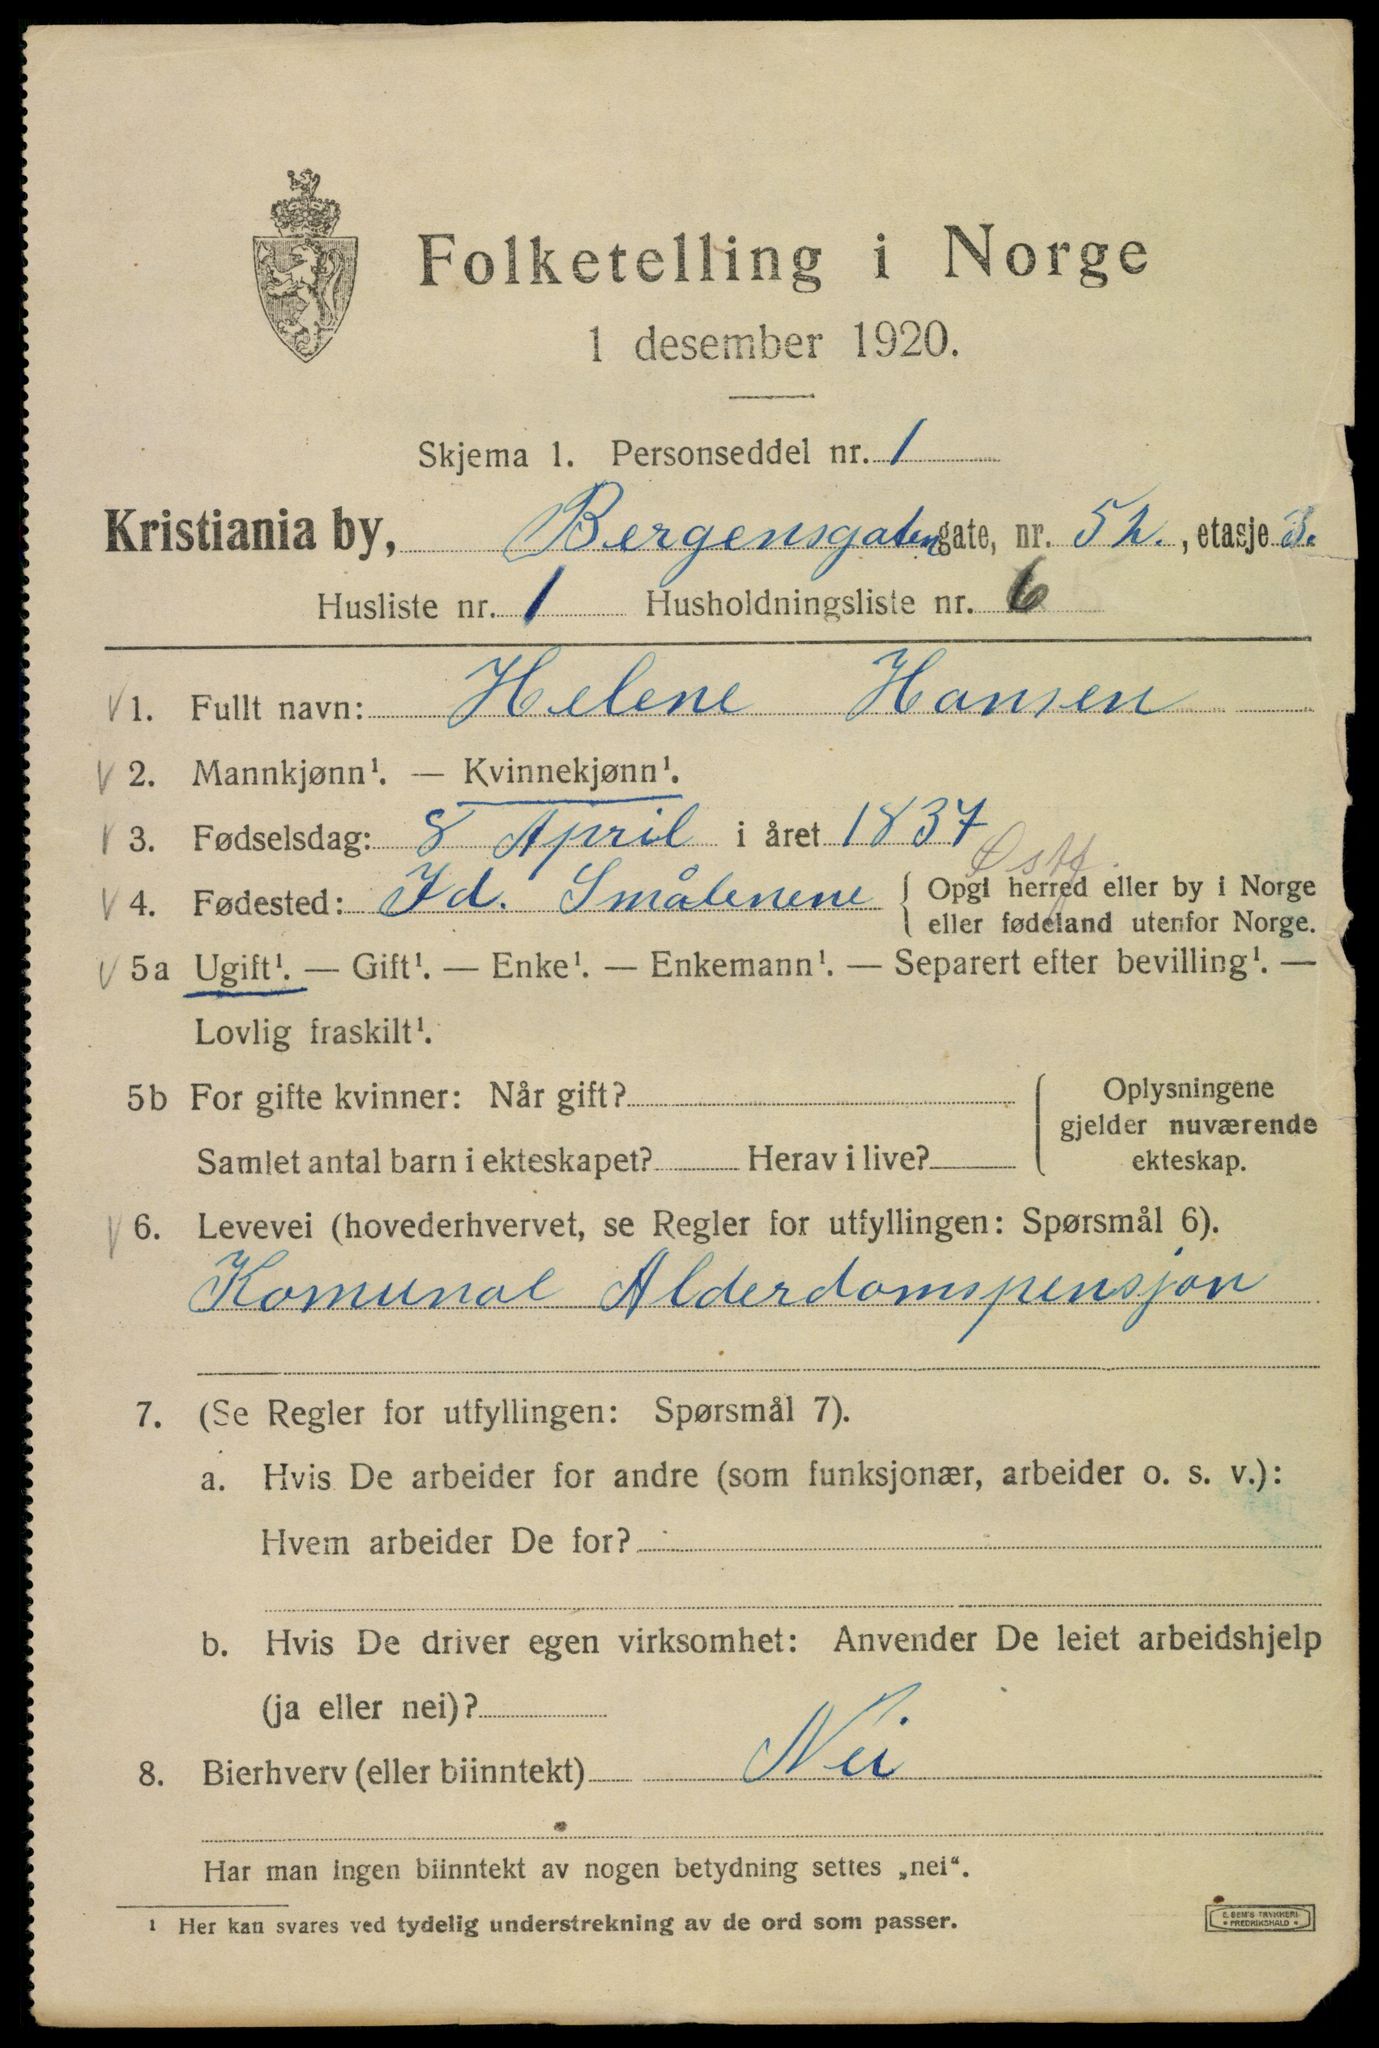 Folketelling i Norge
1 desember 1920.
Skjema 1. Personseddel nr. 1
Kristiania by, Bergensgaten gate, nr. 5 h., etasje 3.
Husliste nr. 1 Husholdningsliste nr. 6
1. Fullt navn: Helene Hansen
2. Mannkjønn¹. — Kvinnekjønn¹.
3. Fødselsdag: 8 April i året 1837
Østf.
4. Fødested: Id. Smålenene { Opgi herred eller by i Norge
eller fødeland utenfor Norge.
5a Ugift¹. — Gift¹. — Enke¹. — Enkemann¹. — Separert efter bevilling¹. —
Lovlig fraskilt¹.
5b For gifte kvinner: Når gift?
Samlet antal barn i ekteskapet? Herav i live?
Oplysningene
gjelder nuværende
ekteskap.
6. Levevei (hovederhvervet, se Regler for utfyllingen: Spørsmål 6).
Komunal Alderdomspensjon
7. (Se Regler for utfyllingen: Spørsmål 7).
a. Hvis De arbeider for andre (som funksjonær, arbeider o. s. v.):
Hvem arbeider De for?
b. Hvis De driver egen virksomhet: Anvender De leiet arbeidshjelp
(ja eller nei)?
8. Bierhverv (eller biinntekt) Nei
Har man ingen biinntekt av nogen betydning settes „nei“.
¹ Her kan svares ved tydelig understrekning av de ord som passer.
E. SEM'S TRYKKERI
FREDRIKSHALD